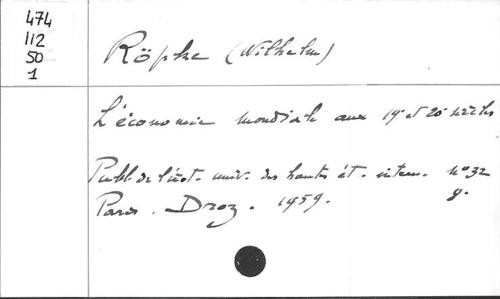 474
112
50
1
Röpke (Wilhelm)
L'économie mondiale aux 19e et 20e siècles
Publ. de l'inst. univ. des hautes ét. intern. n° 32
Paris. Droz. 1959. 8.